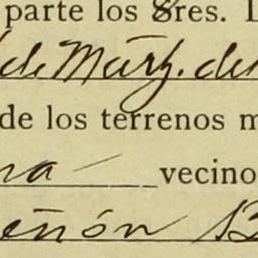 parte los Sres.
de Márz. de
de los terrenos
na vecino
eñón B